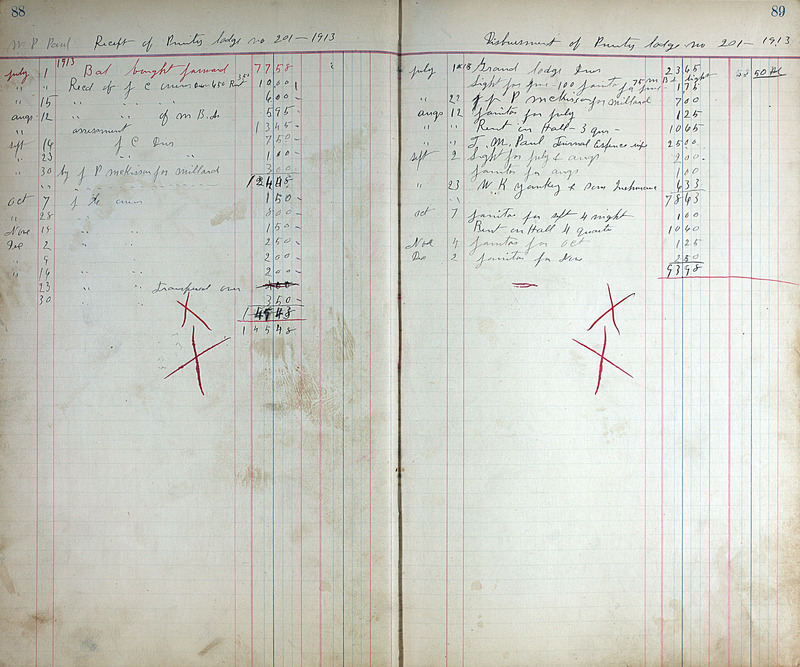 88
W. P. Paul Recept of Puritey lodge no 201 — 1913
1913
July 1 Bal bought forward 77 58
" " Recd of J C 10 00
" 15 " " " 6 00
augs 12 " " of M. B. ds 5 95
" " assessment 13 45
Sept 14 J C Dues 7 50
" 23 " " 1 00
" 30 by J P McKisson for Millard 3 00
" "
Oct 7 J C 1 50
" 28 " " 8 00
Nov 14 " " 1 50
Dec 2 " " 2 50
" 9 " " 2 00
" 14 " " 2 00
23 " " Transfered
30 3 50
1 45 48
1 45 48
89
Disbursment of Puritey lodge no 201 — 1913
July 1 Grand lodge Dues 23 65
light for 1 75
50
" 22 J P McKisson for Millard 7 00
augs 12 Janitor for July 1 25
" " Rent on Hall - 3 qur - 10 65
" " T. M. Paul 25 00
Sept 2 light for July & augs 2 00
Janitor for augs 1 00
" 23 W. K Yankey & Son Insurance 6 33
78 43
Oct 7 Janitor for Sept 4 night 1 00
Rent on Hall 4 quarter 10 40
Nov 4 Janitor for Oct 1 25
Dec 2 Janitor for 2 50
93 98